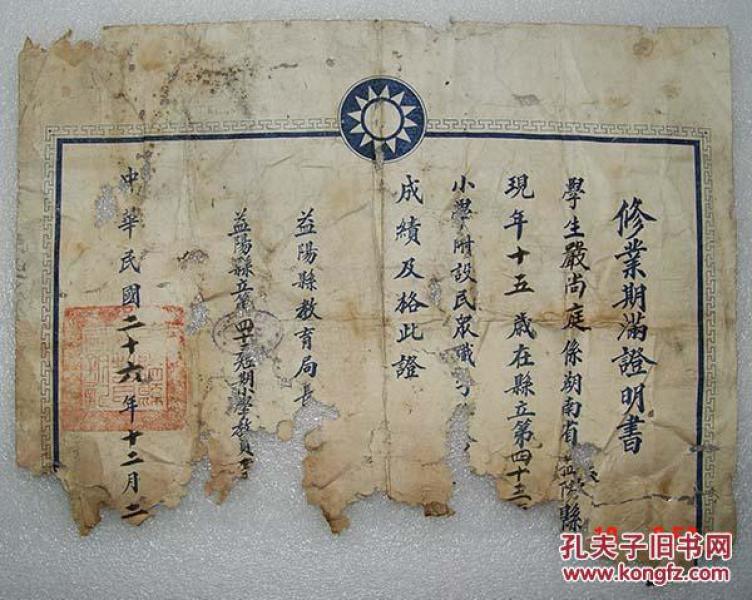 修業期滿證明書
學生嚴尚庭係湖南省益陽縣
現年十五歲在縣立第四十三
小學附設民眾職
成績及格此證
益陽縣教育局長
益陽縣立第四十三短期小學教員
中華民國二十六年十二月二
孔夫子旧书网
www.kongfz.com